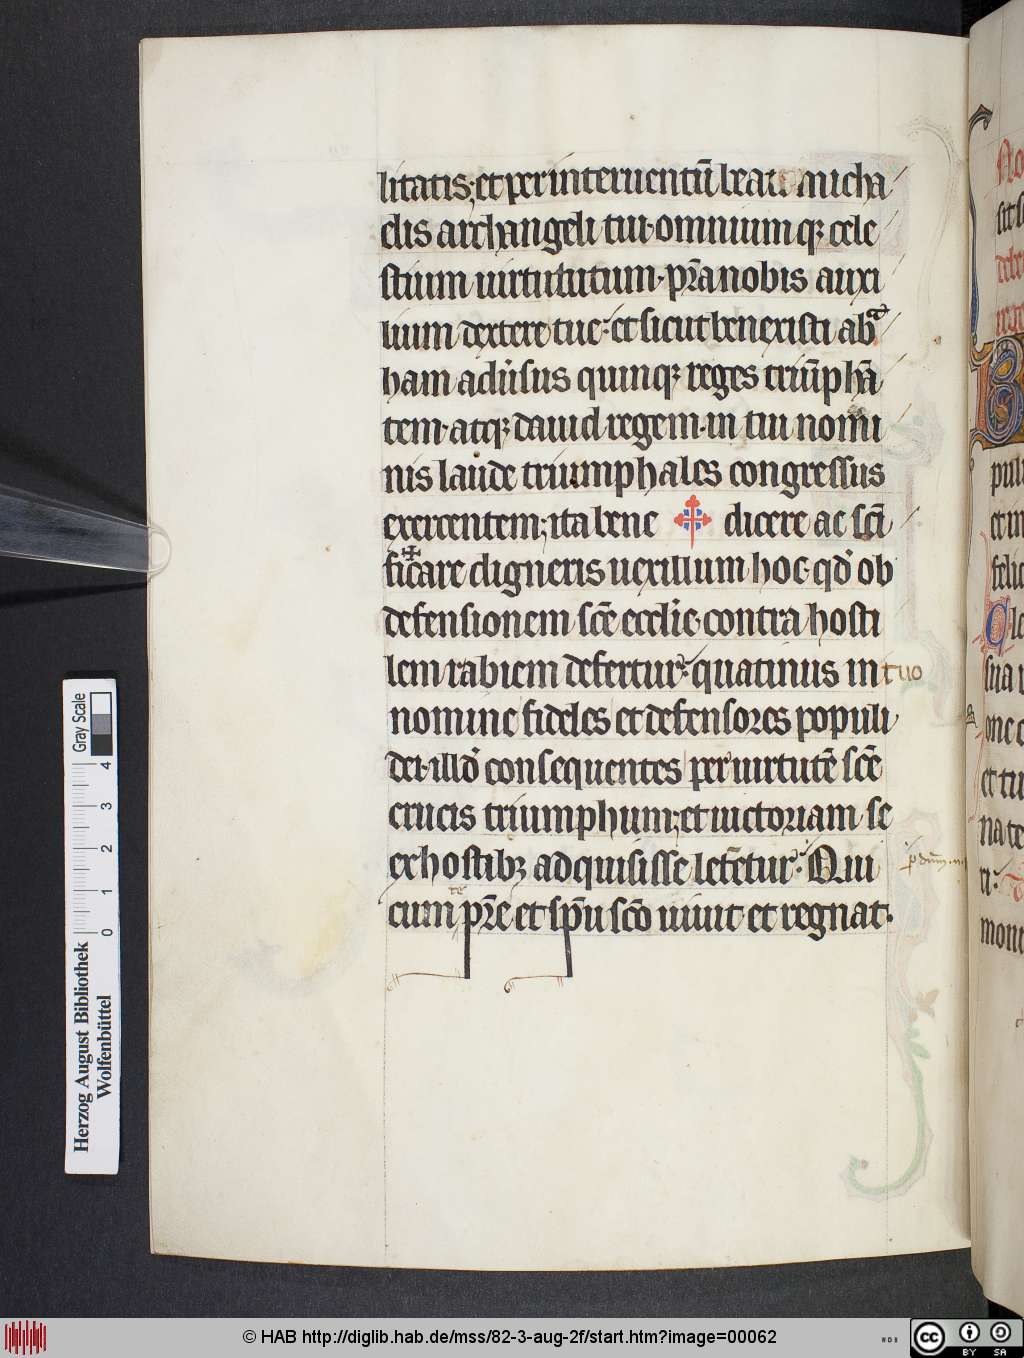 litatis; et per interuentū beati micha
elis archangeli tui·omnium qȝ cele
stium uirtututum·pr̄a nobis auxi
lium dextere tue: et sicut benexisti ab̄a
ham adu̓sus quinqȝ reges triūphā
tem·atqȝ dauid regem·in tui nomi
nis laude triumphales congressus
exercentem; ita bene ✠ dicere ac sc̄i
ficare digneris uexillum hoc·qd̓ ob
defensionem sc̄e eccl̓ie·contra hosti
lem rabiem defertur: quatinus in tuo
nomine fideles et defensores populi
dei·illd̓ consequentes per uirtutē sc̄e
crucis triumphum; et uictoriam se
ex hostibȝ adquisisse let̄etur: Qui
cum pr̄e et sp̄u sc̄o uiuit et regnat·
te
Gray Scale
4 3 2 1 0
Herzog August Bibliothek
Wolfenbüttel
© HAB http://diglib.hab.de/mss/82-3-aug-2f/start.htm?image=00062
cc BY SA